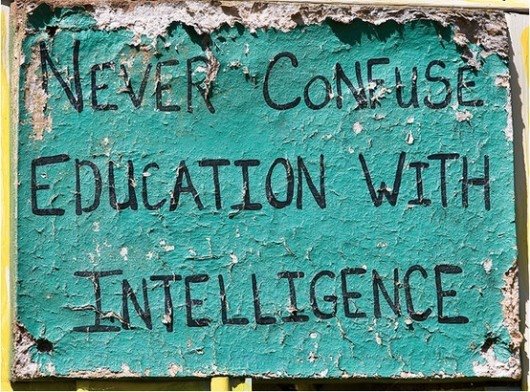 Never Confuse
Education With
Intelligence